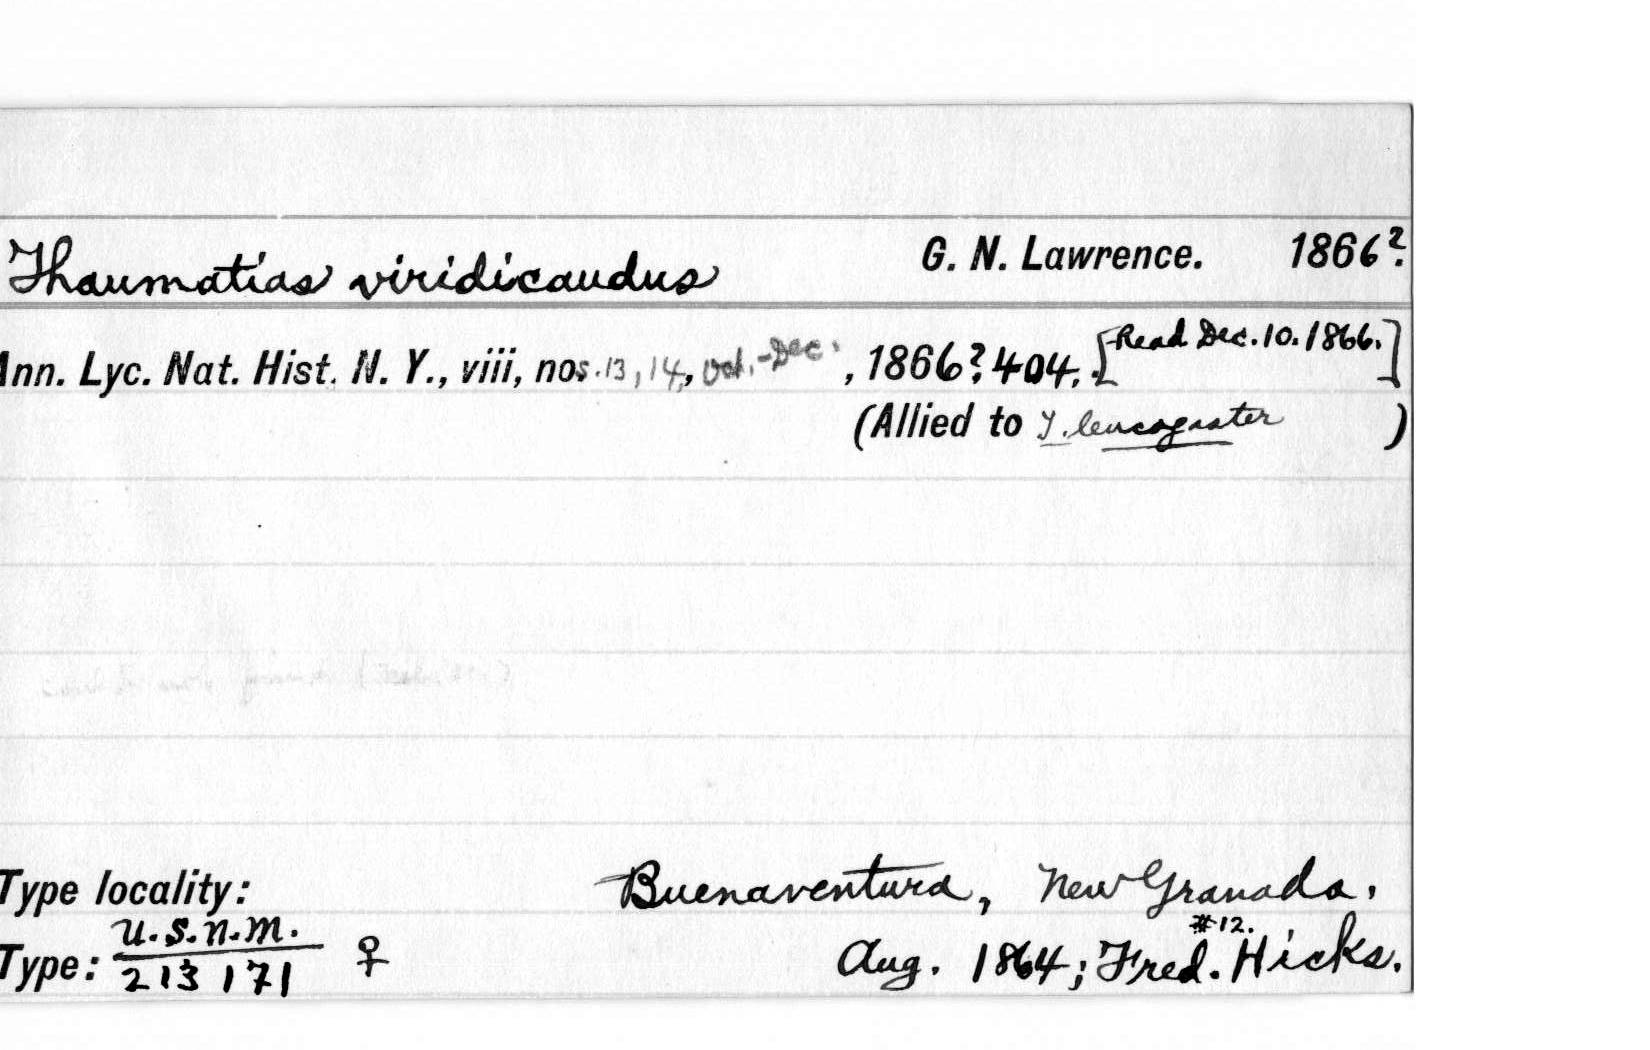 Thaumatias viridicaudus G. N. Lawrence. 1866?.
Ann. Lyc. Nat. Hist. N. Y., viii, nos. 13, 14, Oct.-Dec., 1866?, 404. [Read Dec. 10. 1866.]
(Allied to T. leucogaster )
Type locality: Buenaventura, New Granada.
U.S.N.M. #12.
Type: 213171 ♀ Aug. 1864; Fred. Hicks.